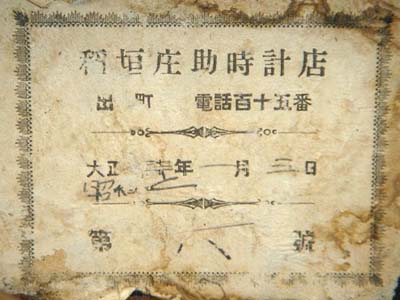 稻垣庄助時計店
出町 電話百十五番
大正 年一月三日
昭和二
第六號